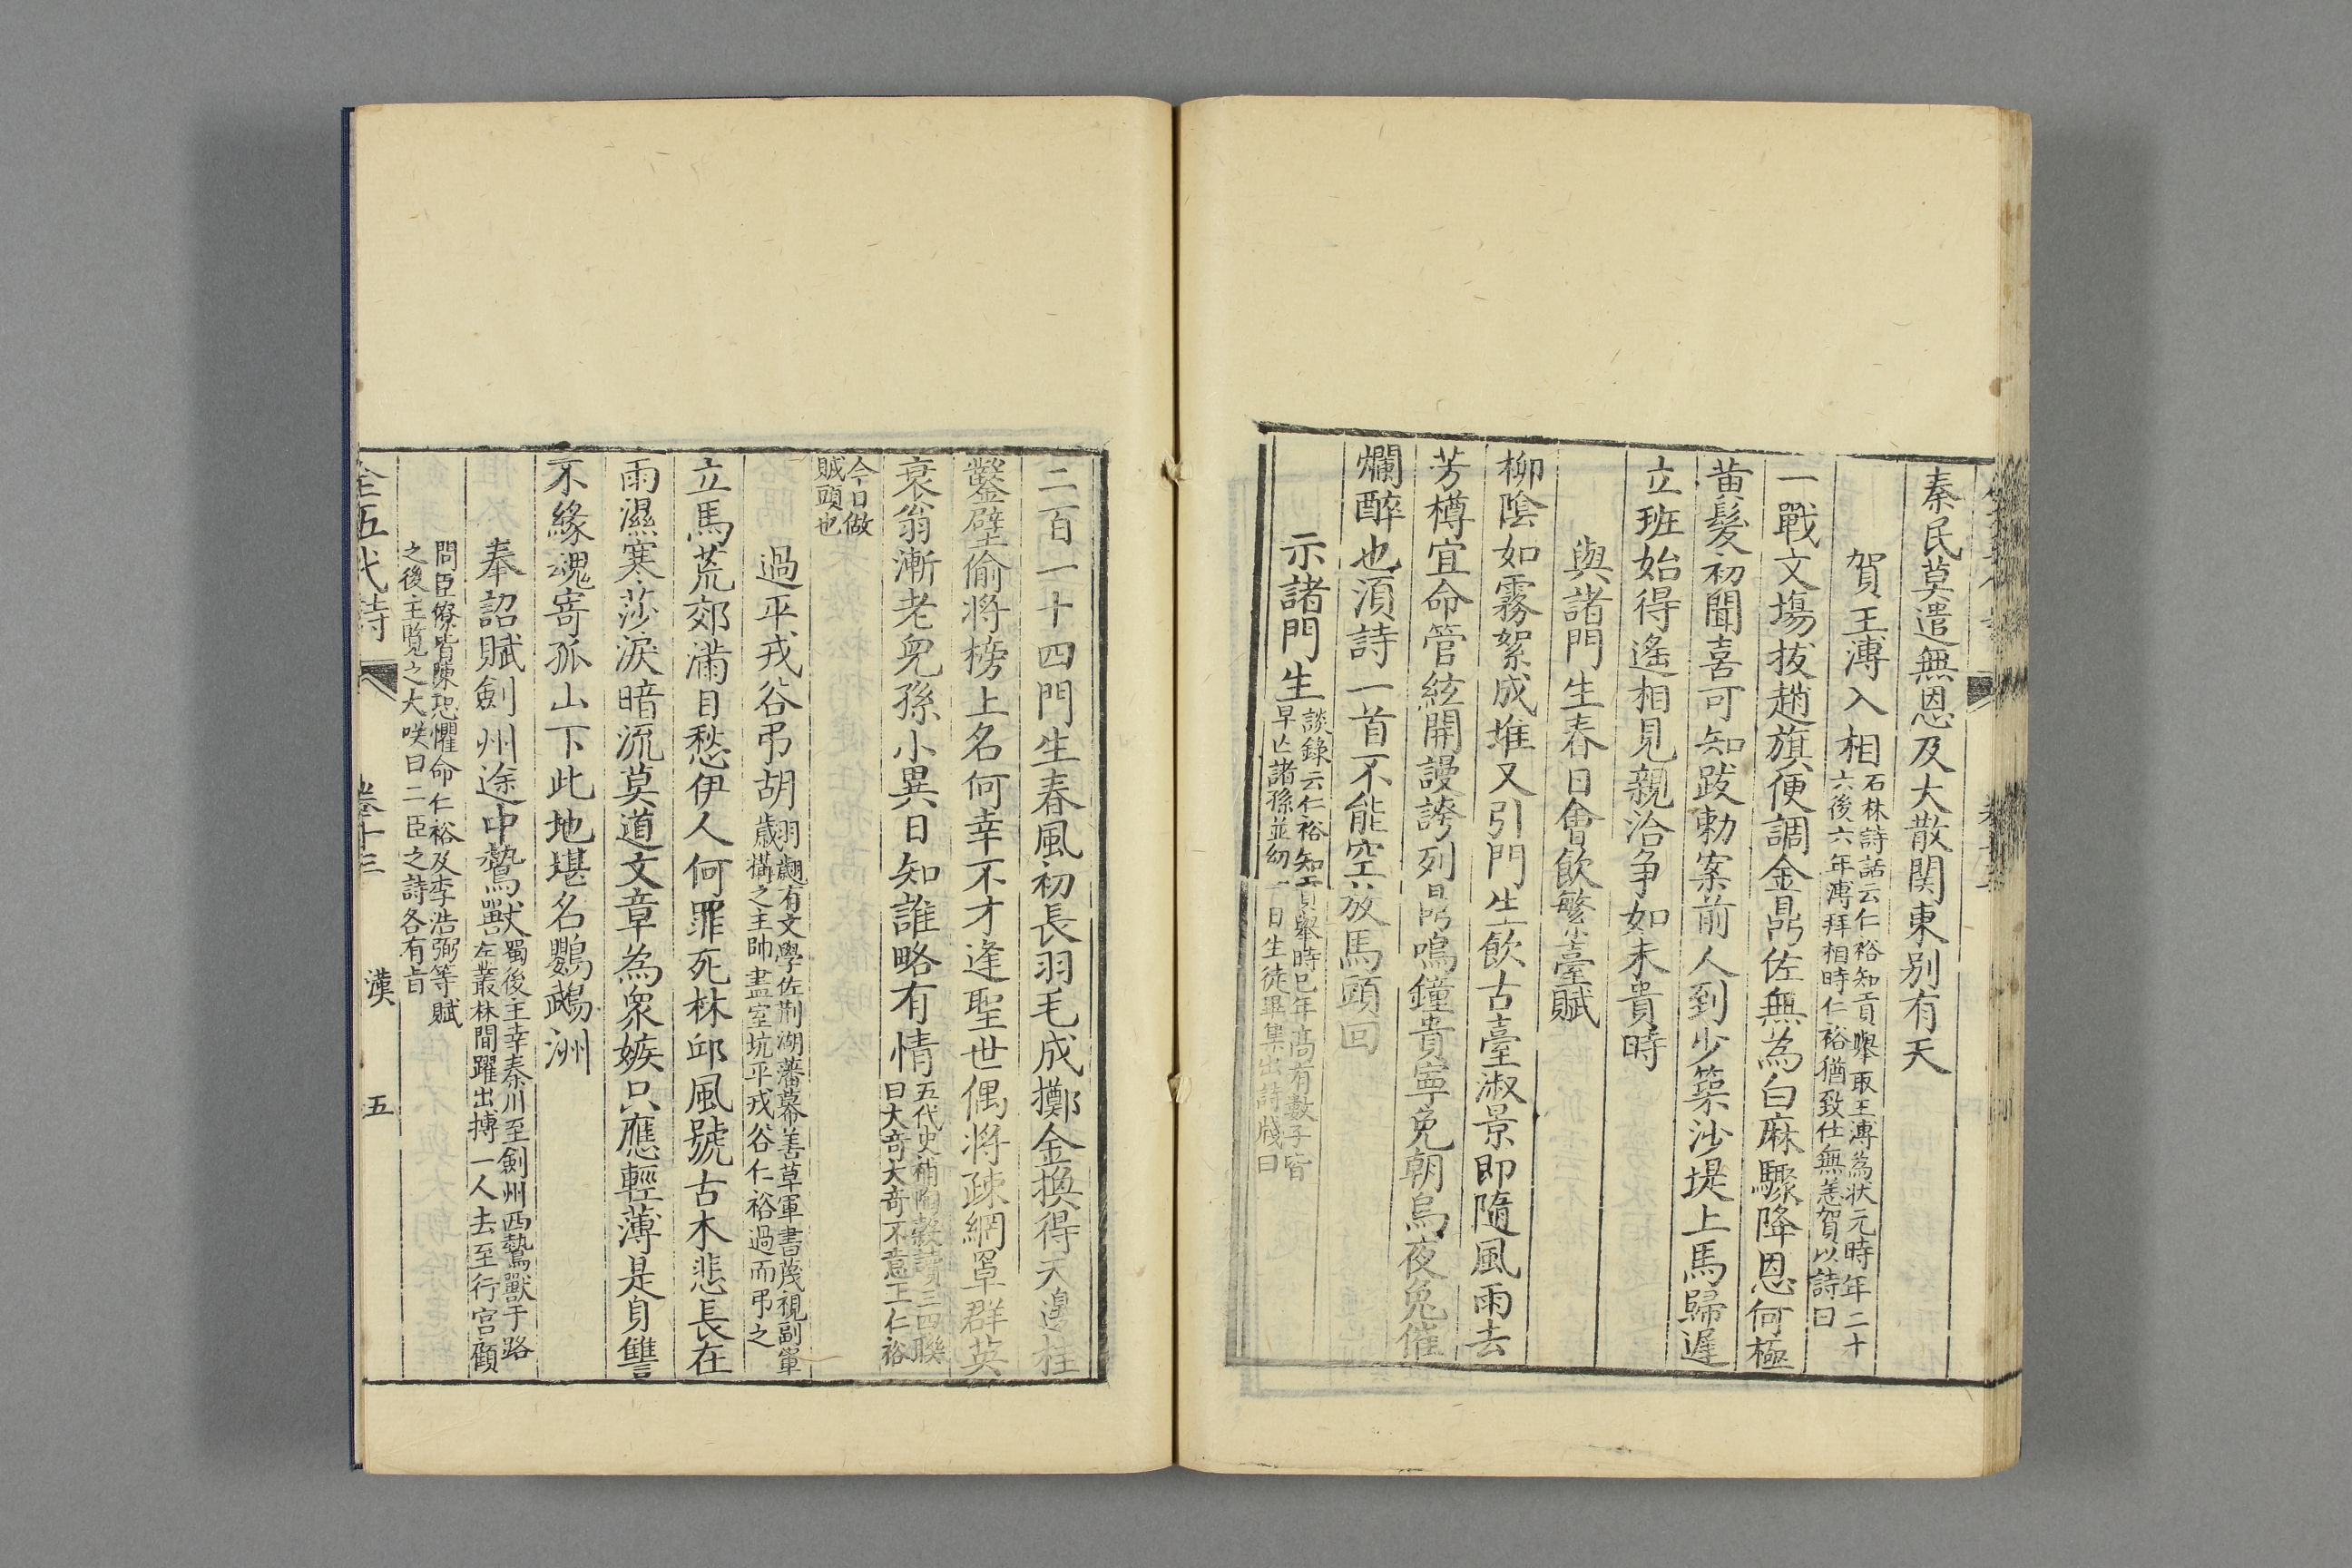 秦民莫遣無恩及大散関東别有天
賀王溥入相
石林詩話云仁裕知貢舉取王溥為狀元時年二十
六後六年溥拜相時仁裕猶致仕無恙賀以詩曰
一戰文塲拔趙旗便調金鼎佐無為白麻驟降恩何極
黄髮初聞喜可知跋勅案前人到少築沙堤上馬歸遲
立班始得遙相見親洽争如未貴時
與諸門生春日會飲繁臺賦
柳陰如霧絮成堆又引門生飲古臺淑景即隨風雨去
芳樽宜命管絃開謾誇列鼎鳴鐘貴寧免朝烏夜兔催
爛醉也湏詩一首不能空放馬頭回
示諸門生
談錄云仁裕知貢舉時已年髙有數子皆
早亡諸孫並幼一日生徒畢集出詩牋曰
二百一十四門生春風初長羽毛成擲金換得天邊桂
鑿壁偷将榜上名何幸不才逢聖世偶将疎網罩群英
衰翁漸老兒孫小異日知誰略有情
五代史補陶穀讀三四聯
曰大竒大竒不意王仁裕
今日做
賊頭也
過平戎谷弔胡
翽有文學佐荆湖藩幕善草軍書茂視副軰
歳搆之主帥盡室坑平戎谷仁裕過而弔之
立馬荒郊滿目愁伊人何罪死林邱風號古木悲長在
雨濕寒莎淚暗流莫道文章為衆嫉只應輕薄是身讐
不緣魂寄孤山下此地堪名鸚鵡洲
奉詔賦劍州途中鷙獸
蜀後主幸秦川至劍州西鷙獸于路
左叢林間躍出搏一人去至行宫顧
問臣僚皆陳恐懼命仁裕及李浩弼等賦
之後主覧之大咲曰二臣之詩各有㫖
全五代詩
卷十三
漢
五